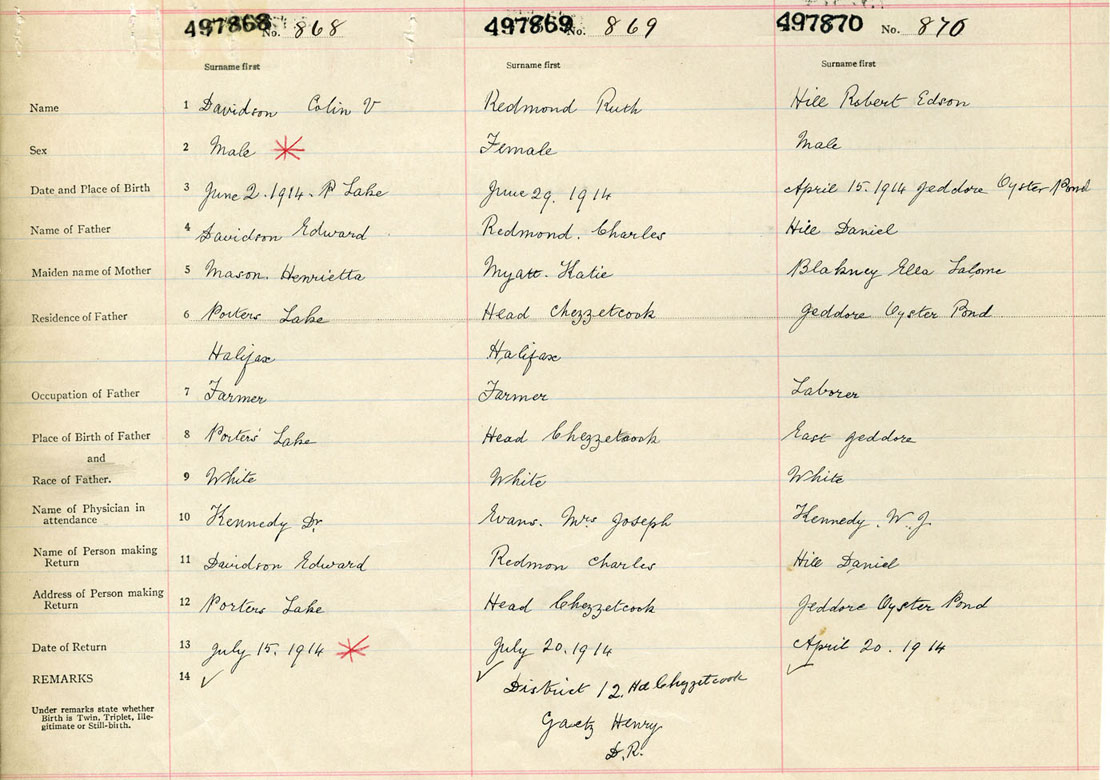 497868 No. 868 497869 No. 869 497870 No. 870
Surname first Surname first Surname first
Name 1 Davidson Colin V Redmond Ruth Hill Robert Edson
Sex 2 Male Female Male
Date and Place of Birth 3 June 2. 1914. P Lake June 29. 1914 April 15. 1914 Jeddore Oyster Pond
Name of Father 4 Davidson Edward Redmond. Charles Hill Daniel
Maiden name of Mother 5 Mason. Henrietta Myatt. Katie Blakney Ella Salome
Residence of Father 6 Porters Lake Head Chezzetcook Jeddore Oyster Pond
Halifax Halifax
Occupation of Father 7 Farmer Farmer Laborer
Place of Birth of Father 8 Porters Lake Head Chezzetcook East Jeddore
and
Race of Father. 9 White White White
Name of Physician in
attendance 10 Kennedy Dr. Evans. Mrs Joseph Kennedy. W. J.
Name of Person making
Return 11 Davidson Edward Redmon Charles Hill Daniel
Address of Person making
Return 12 Porters Lake Head Chezzetcook Jeddore Oyster Pond
Date of Return 13 July 15. 1914 July 20. 1914 April 20. 1914
REMARKS 14 District 12. Hd Chezzetcook
Under remarks state whether
Birth is Twin, Triplet, Ille-
gitimate or Still-birth.
Gaetz Henry
D.R.